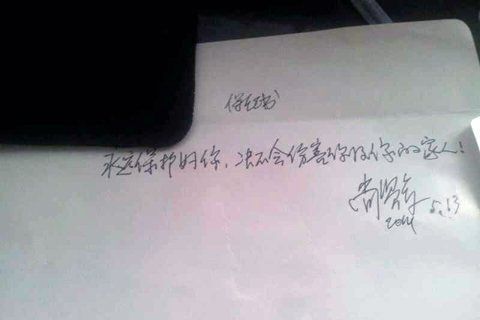 保证书
永远保护好你，决不会伤害你及你的家人！
2014 5.13